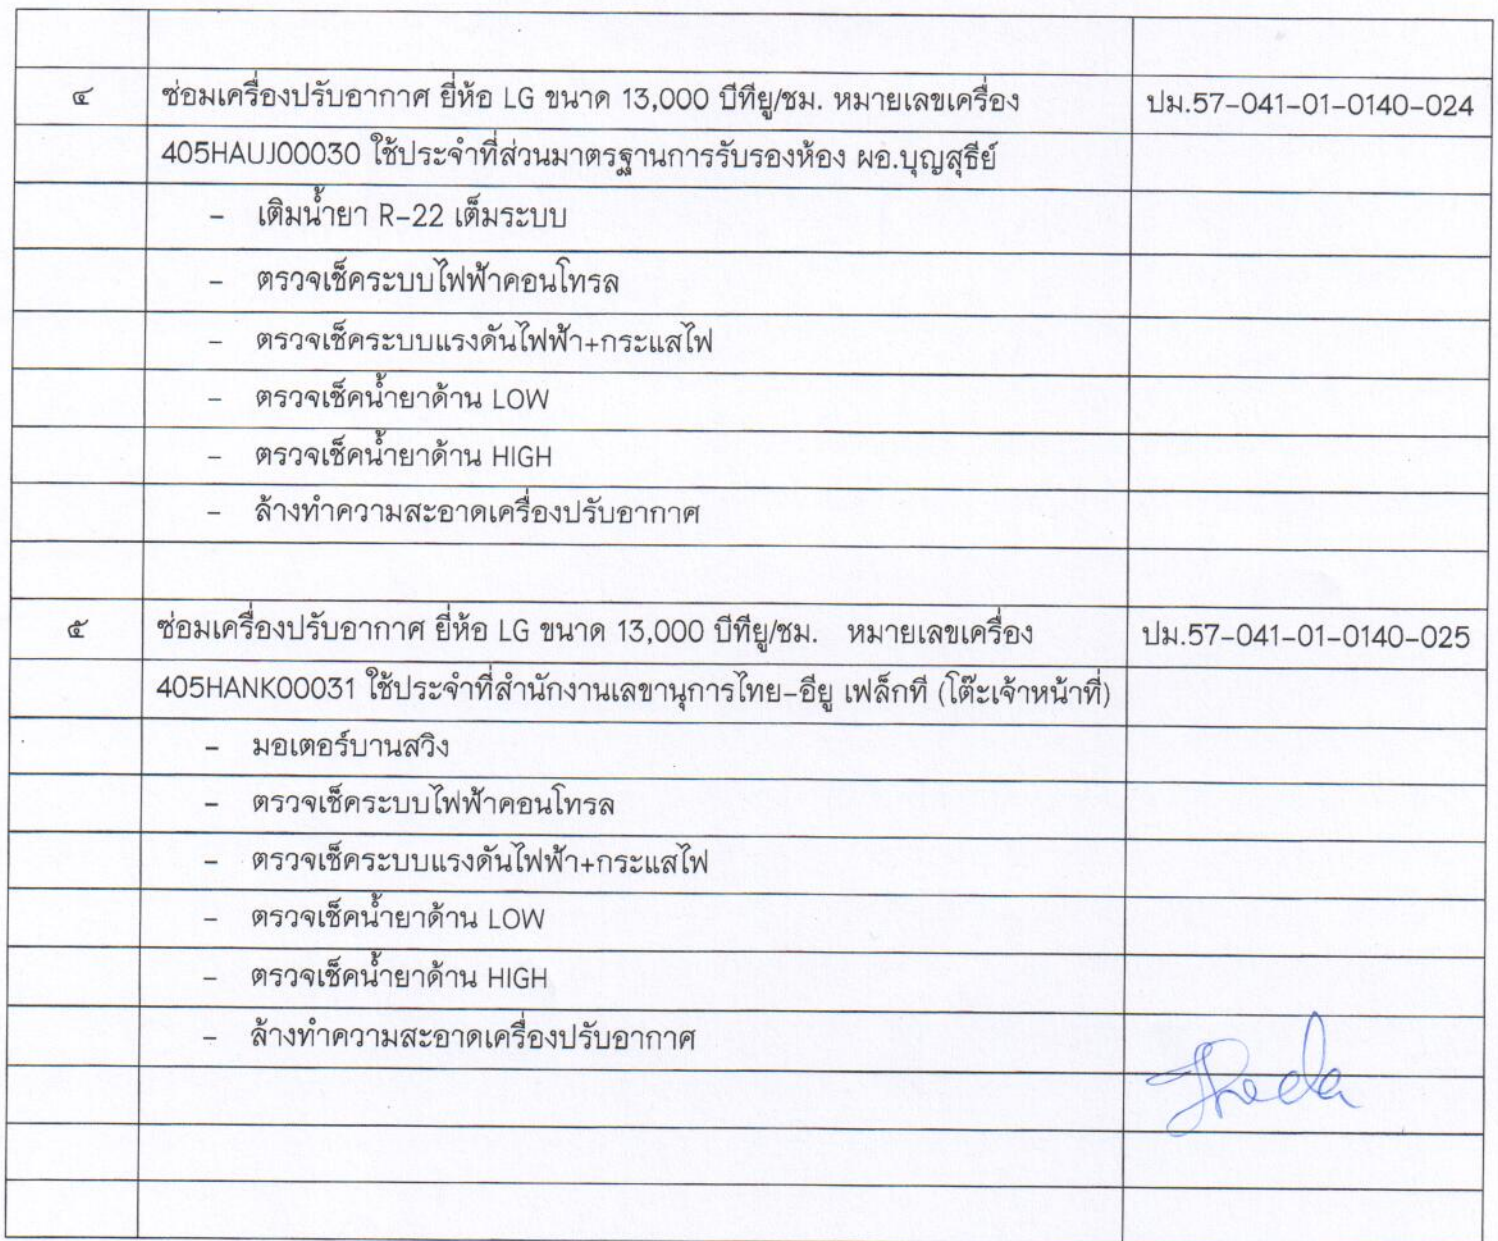 ๔ ซ่อมเครื่องปรับอากาศ ยี่ห้อ LG ขนาด 13,000 บีทียู/ชม. หมายเลขเครื่อง ปม.57-041-01-0140-024
405HAUJ00030 ใช้ประจำที่ส่วนมาตรฐานการรับรองห้อง ผอ.บุญสุธีย์
- เติมน้ำยา R-22 เต็มระบบ
- ตรวจเช็คระบบไฟฟ้าคอนโทรล
- ตรวจเช็คระบบแรงดันไฟฟ้า+กระแสไฟ
- ตรวจเช็คน้ำยาด้าน LOW
- ตรวจเช็คน้ำยาด้าน HIGH
- ล้างทำความสะอาดเครื่องปรับอากาศ
๕ ซ่อมเครื่องปรับอากาศ ยี่ห้อ LG ขนาด 13,000 บีทียู/ชม. หมายเลขเครื่อง ปม.57-041-01-0140-025
405HANK00031 ใช้ประจำที่สำนักงานเลขานุการไทย-อียู เฟล็กที (โต๊ะเจ้าหน้าที่)
- มอเตอร์บานสวิง
- ตรวจเช็คระบบไฟฟ้าคอนโทรล
- ตรวจเช็คระบบแรงดันไฟฟ้า+กระแสไฟ
- ตรวจเช็คน้ำยาด้าน LOW
- ตรวจเช็คน้ำยาด้าน HIGH
- ล้างทำความสะอาดเครื่องปรับอากาศ